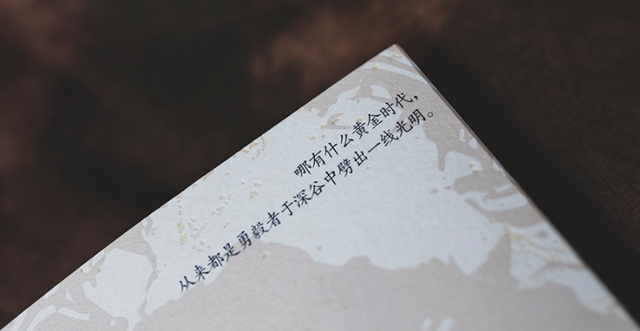 哪有什么黄金时代，
从来都是勇毅者于深谷中劈出一线光明。